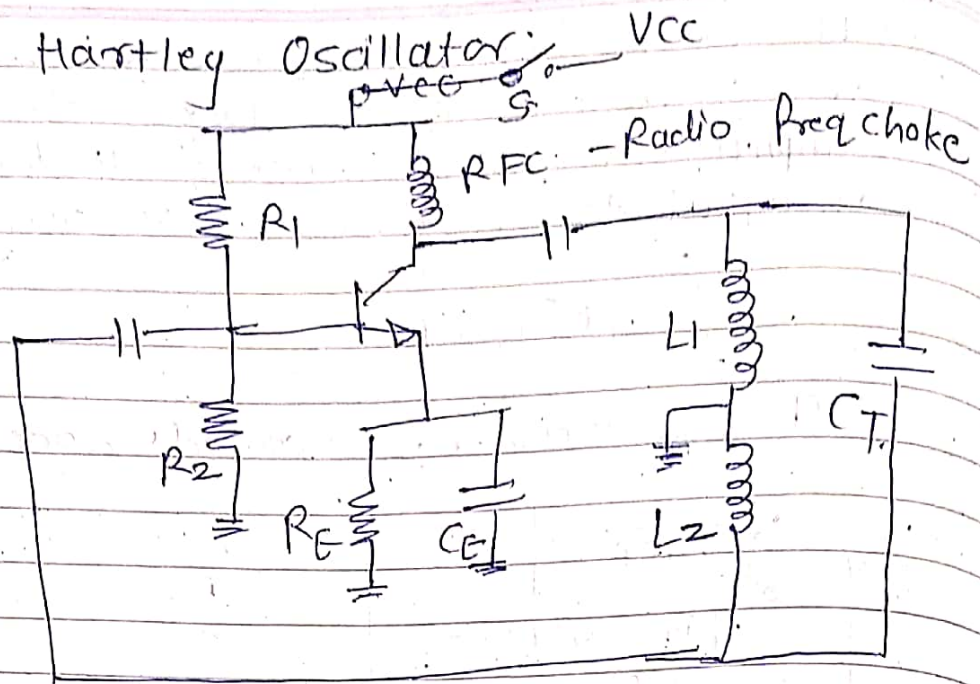 Hartley Oscillator. VCC
VCC
S
RFC. - Radio. freq choke
R1
L1
CT
R2
RE
CE
L2